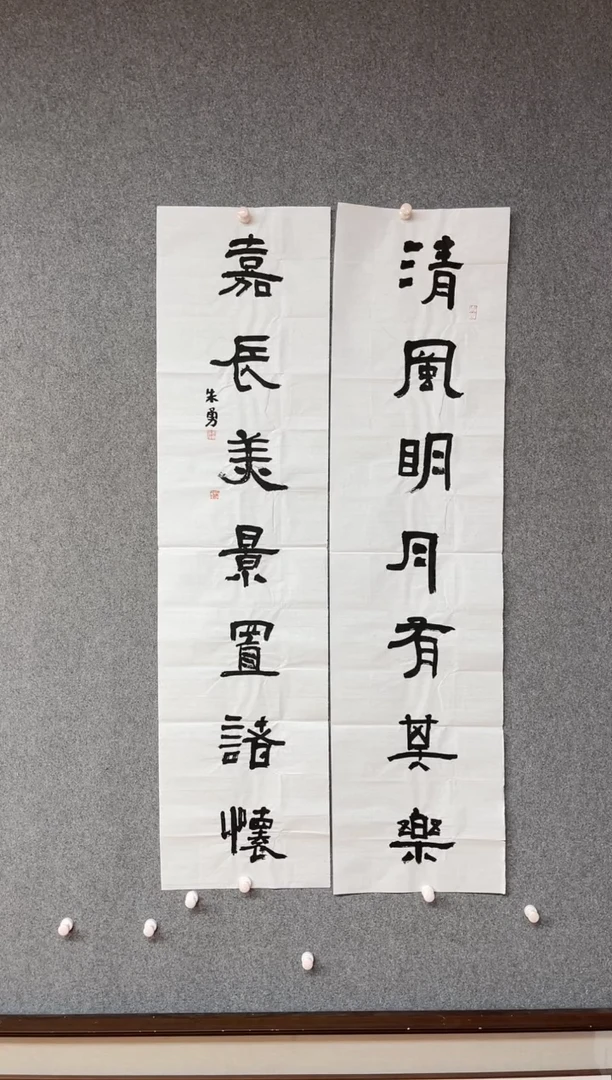 清風明月有其樂
嘉長美景置諸懷
朱勇